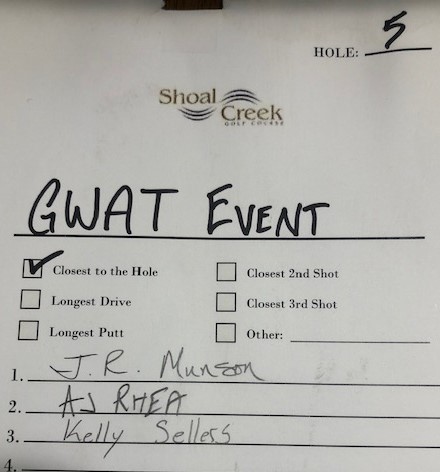 HOLE: 5
Shoal Creek
GOLF COURSE
GWAT EVENT
✓ Closest to the Hole
Closest 2nd Shot
Longest Drive
Closest 3rd Shot
Longest Putt
Other:
1. J.R. Munson
2. AJ RHEA
3. Kelly Sellers
4.